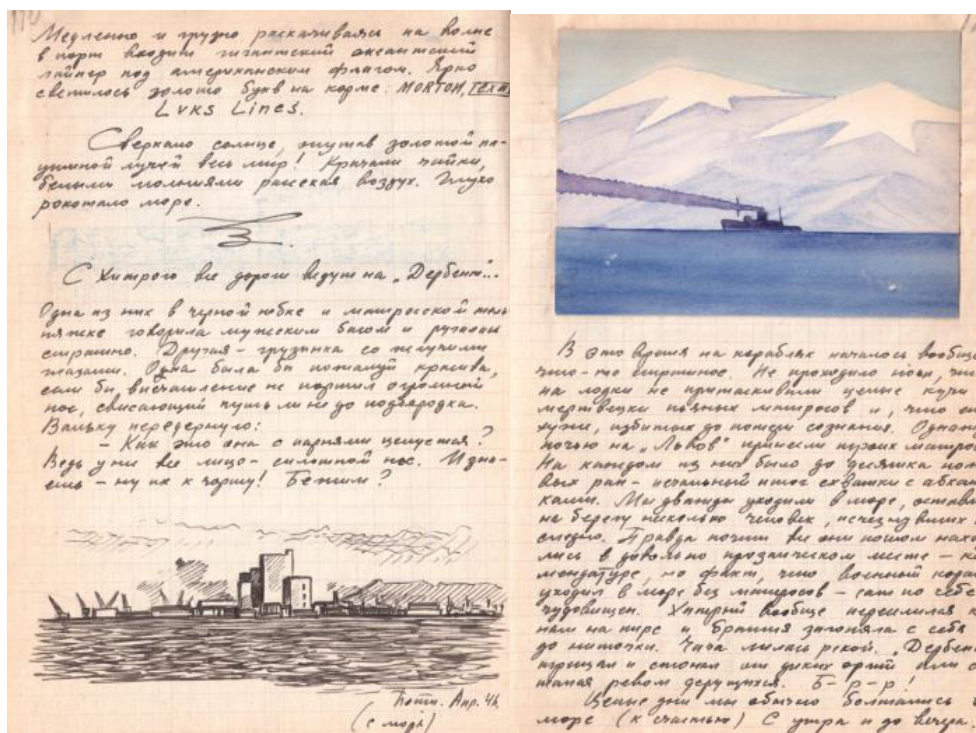 170
Медленно и грузно раскачиваясь на волне
в порт входит гигантский океанский
лайнер под американским флагом. Ярко
светилось золото букв на корме: MORTON, Texas
Lyks Lines.
Сверкало солнце, опутав золотой па-
утиной лучей весь мир! Кричали чайки,
белыми молниями рассекая воздух. Глухо
рокотало море.
С Хитрого все дороги ведут на „Дербент"...
Одна из них в черной юбке и матросской тель
няжке говорила мужским басом и ругалась
страшно. Другая - грузинка со жгучими
глазами. Одна была бы пожалуй красива,
если бы впечатление не портил огромный
нос, свисающий чуть ли не до подбородка.
Вальку передернуло:
- Как это она с парнями целуется?
Ведь у ни все лицо - сплошной нос. И зна-
ешь - ну их к чорту! Бежим?
Поти. Апр. 48
(с моря)
В это время на кораблях началось вообще
что-то страшное. Не проходило ночи, что
на лодки не притаскивали целые кучи
мертвецки пьяных матросов и, что ещ
хуже, избитых до потери сознания. Однажд
ночью на „Львов" принесли троих матрос
На каждом из них было до десятка нож
вых ран - печальный итог схватки с абхаз
ками. Мы дважды уходили в море, оставив
на берегу несколько человек, исчезнувших
следно. Правда почти все они потом нахо
лись в довольно прозаическом месте - ко
мендатуре, но факт, что военный кора
уходил в море без матросов - сам по себе
чудовищен. Хитрый вообще переселился к
нам на пирс и братия загоняла с себя
до ниточки. Чача лилась рекой. „Дербент
трещал и стонал от диких оргий или с
пьяная ревом дерущихся. Б-р-р!
Целые дни мы обычно болтались в
море (к счастью) С утра и до вечера.